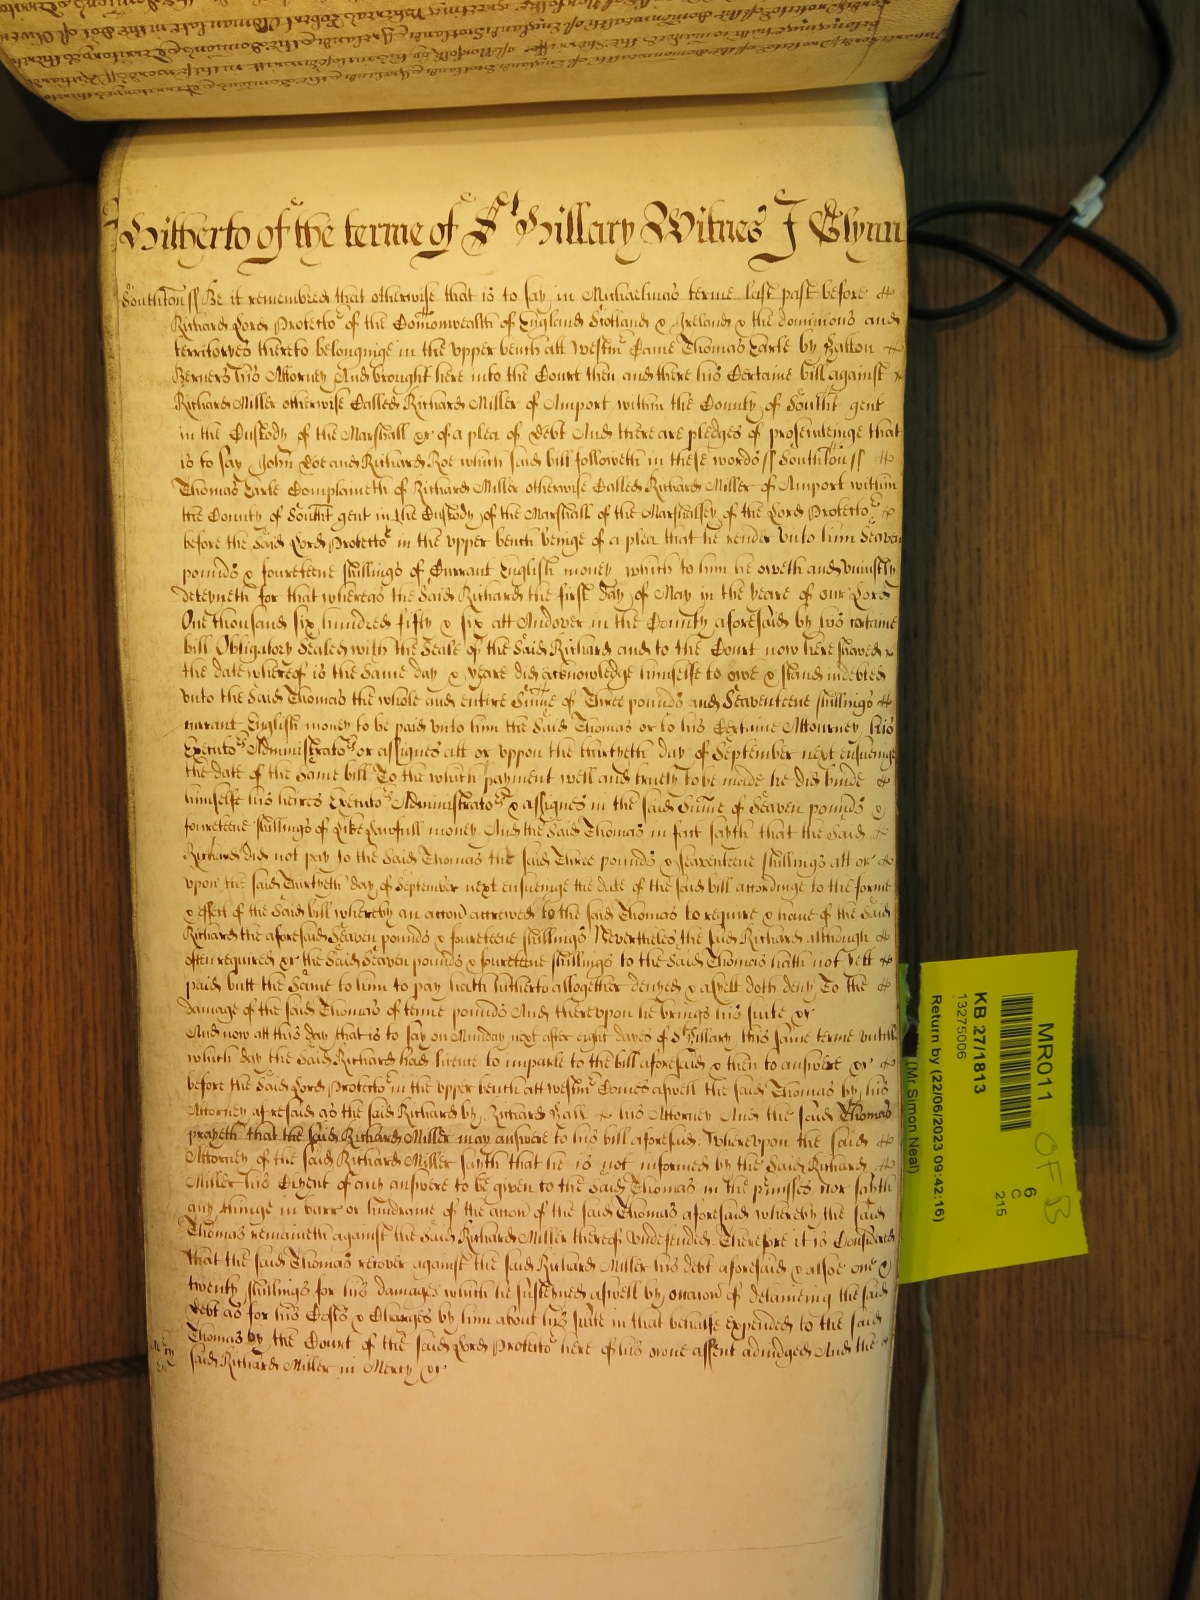 Hitherto of the terme of St Hillary Witnes J Glynn
Southton ss Be it remembred that otherwise that is to say in Michaelmas terme last past before
Richard Lord Protector of the Comonwealth of England Scotland & Ireland & the dominions and
territoryes thereto belonginge in the vpper bench att Westmr Came Thomas Earle by Hatton
Berners his Attorney And brought here into the Court then and there his Certaine bill against
Richard Miller otherwise Called Richard Miller of Amport within the County of Southt gent
in the Custody of the Marshall &c of a plea of debt And there are pledges of prosecuteinge that
is to say John Doe and Richard Roe which said bill followeth in these words ss Southton ss
Thomas Earle Complaineth of Richard Miller otherwise Called Richard Miller of Amport within
the County of Southt gent in the Custody of the Marshall of the Marshallsey of the Lord Protector
before the said Lord Protector in the vpper bench beinge of a plea that he render vnto him Seaven
pounds & foureteene shillings of Currant English money which to him he oweth and vniustly
deteyneth for that whereas the said Richard the first day of May in the yeare of our Lord
One thousand six hundred fifty & six att Andover in the County aforesaid by his certaine
bill Obligatory Sealed with the Seale of the said Richard and to the Court now here shewed
the date whereof is the same day & yeare did acknowledge himselfe to owe & stand indebted
vnto the said Thomas the whole and entire Sume of Three pounds and Seaventeene shillings
currant English money to be paid vnto him the said Thomas or to his Certaine Attourney his
Executors Administrators or assignes att or vppon the thirtyeth day of September next ensueinge
the date of the same bill To the which payment well and truely to be made he did binde
himselfe his heires Executors Administrators & assignes in the said Sume of Seaven pounds &
foureteene shillings of Like Lawfull money And the said Thomas in fact sayth that the said
Richard did not pay to the said Thomas the said Three pounds & Seaventeene shillings att or
vpon the said Thirtyeth day of September next ensueinge the date of the said bill accordinge to the forme
& effect of the said bill whereby an accon accrewed to the said Thomas to require & haue of the said
Richard the aforesaid Seaven pounds & foureteene shillings Nevertheles the said Richard although
often required &c the said Seaven pounds & foureteene shillings to the said Thomas hath not yett
paid butt the same to him to pay hath hitherto altogether denyed & as yett doth deny To the
damage of the said Thomas of tenne pounds And therevpon he brings his suite &c
And now att this day that is to say on Munday next after eight dayes of St Hillary this same terme vntill
which day the said Richard had licence to imparle to the bill aforesaid & then to answere &c
before the said Lord Protector in the vpper bench att Westmr Comes aswell the said Thomas by his
Attorney aforesaid as the said Richard by Richard Hall his Attorney And the said Thomas
prayeth that the said Richard Miller may answere to his bill aforesaid Wherevpon the said
Attorney of the said Richard Miller sayth that he is not informed by the said Richard
Miller his Clyent of any answere to be given to the said Thomas in the prmisses nor sayth
any thinge in barr or hindrance of the accon of the said Thomas aforesaid whereby the said
Thomas remaineth against the said Richard Miller thereof vndefended Therefore it is Considered
that the said Thomas recover against the said Richard Miller his debt aforesaid & alsoe one &
twenty shillings for his damages which he susteyned aswell by occacon of detaineing the said
debt as for his Costs & Charges by him about his suite in that behalfe expended to the said
Thomas by the Court of the said Lord Protector here of his owne assent adiudged And the
said Richard Miller in Mercy &c
MR011
OFB
6
C
215
KB 27/1813
13275006
Return by (22/06/2023 09:42:16)
(Mr Simon Neal)